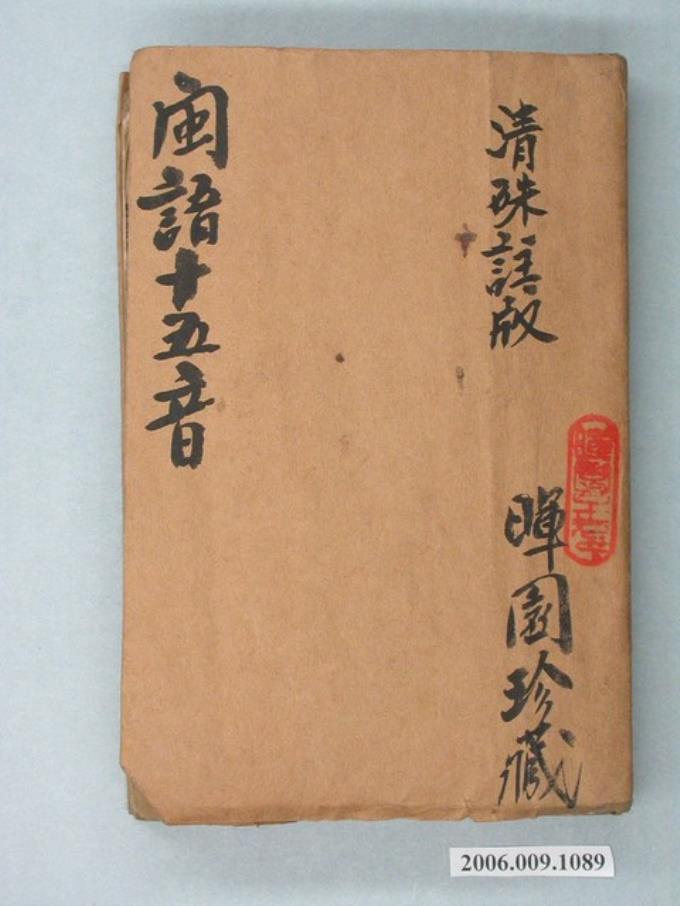 清硃註版
暉園珍藏
閩語十五音
2006.009.1089